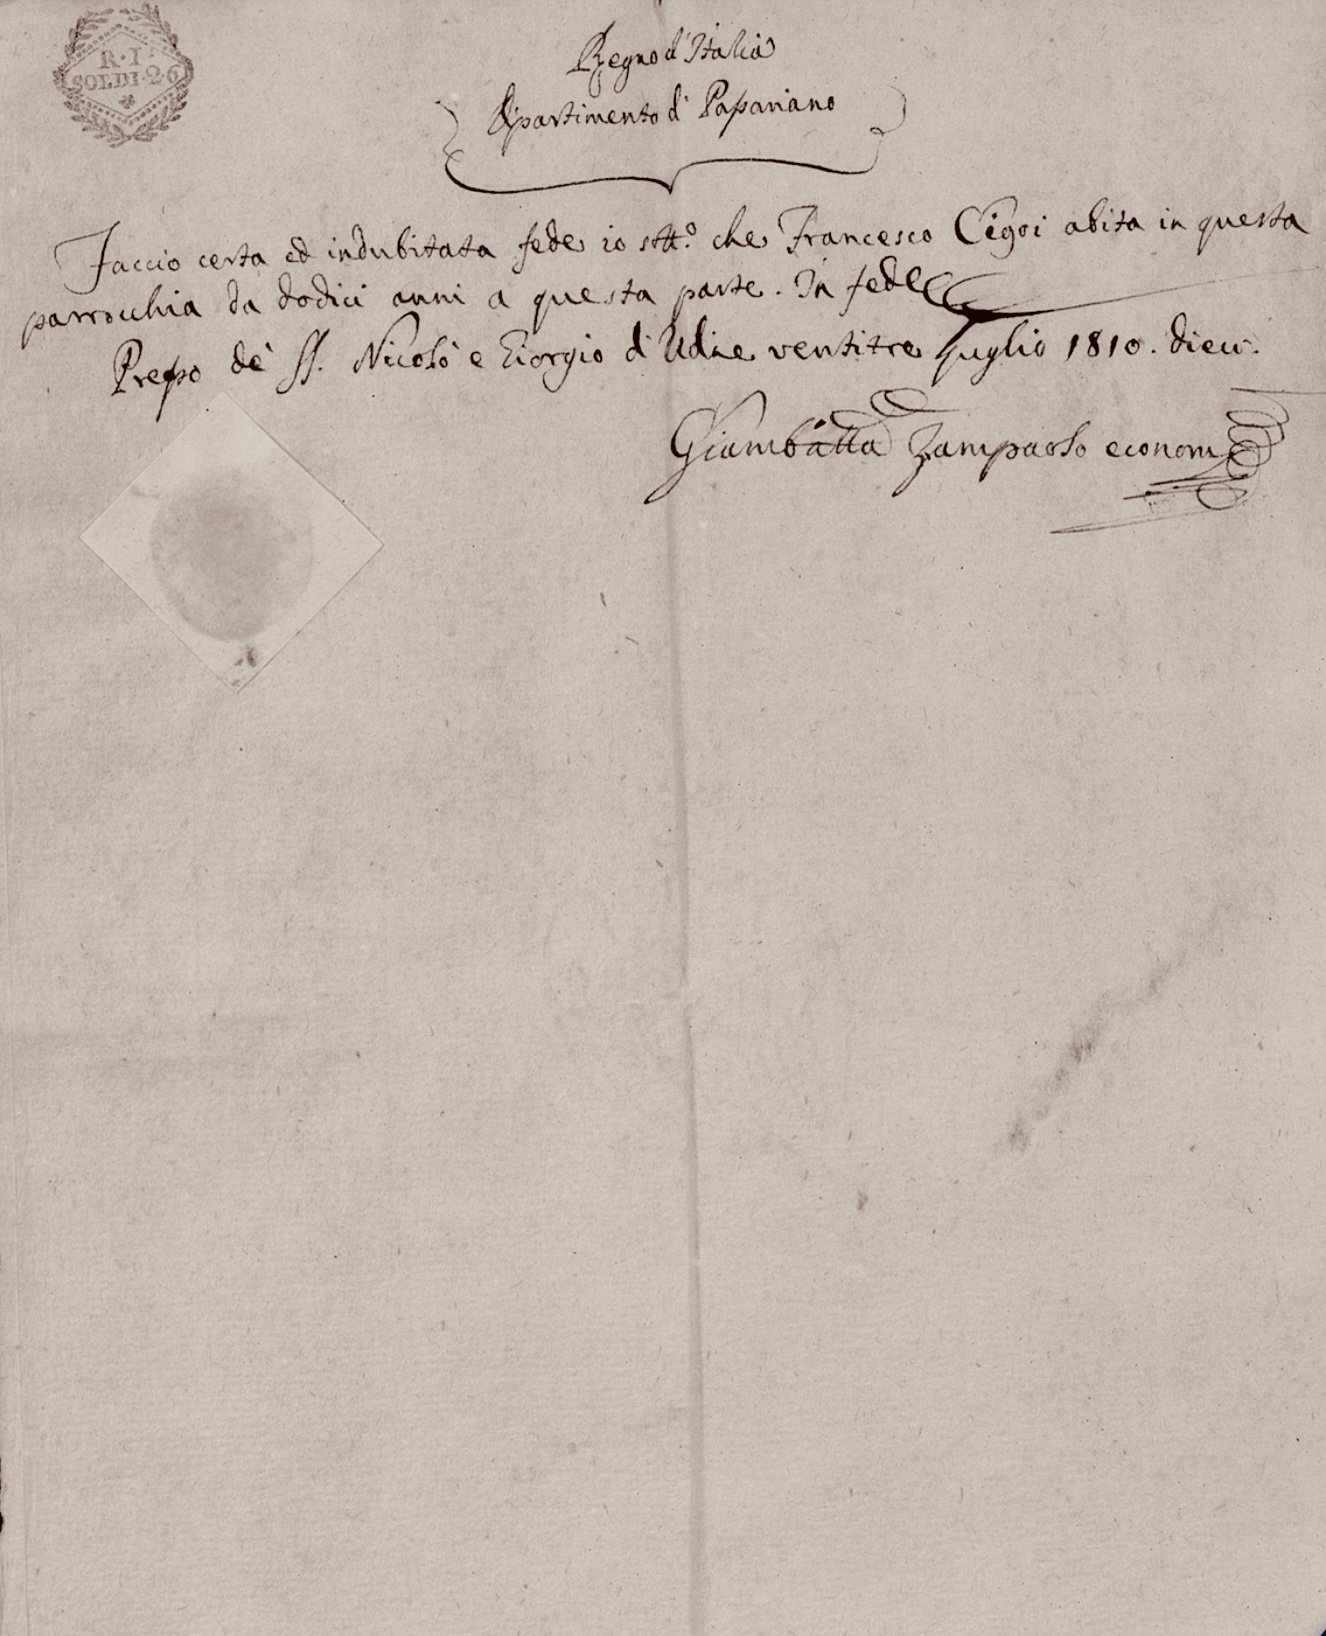 R·I·
SOLDI·26
Regno d'Italia
Dipartimento di Pasariano
Faccio certa ed indubitata fede io stt.º che Francesco Cigoi abita in questa
parrocchia da dodici anni a questa parte. In fede
Presso de' SS. Nicolò e Giorgio di Udine ventitre Luglio 1810. dieci.
Giambatta Zampaolo econom